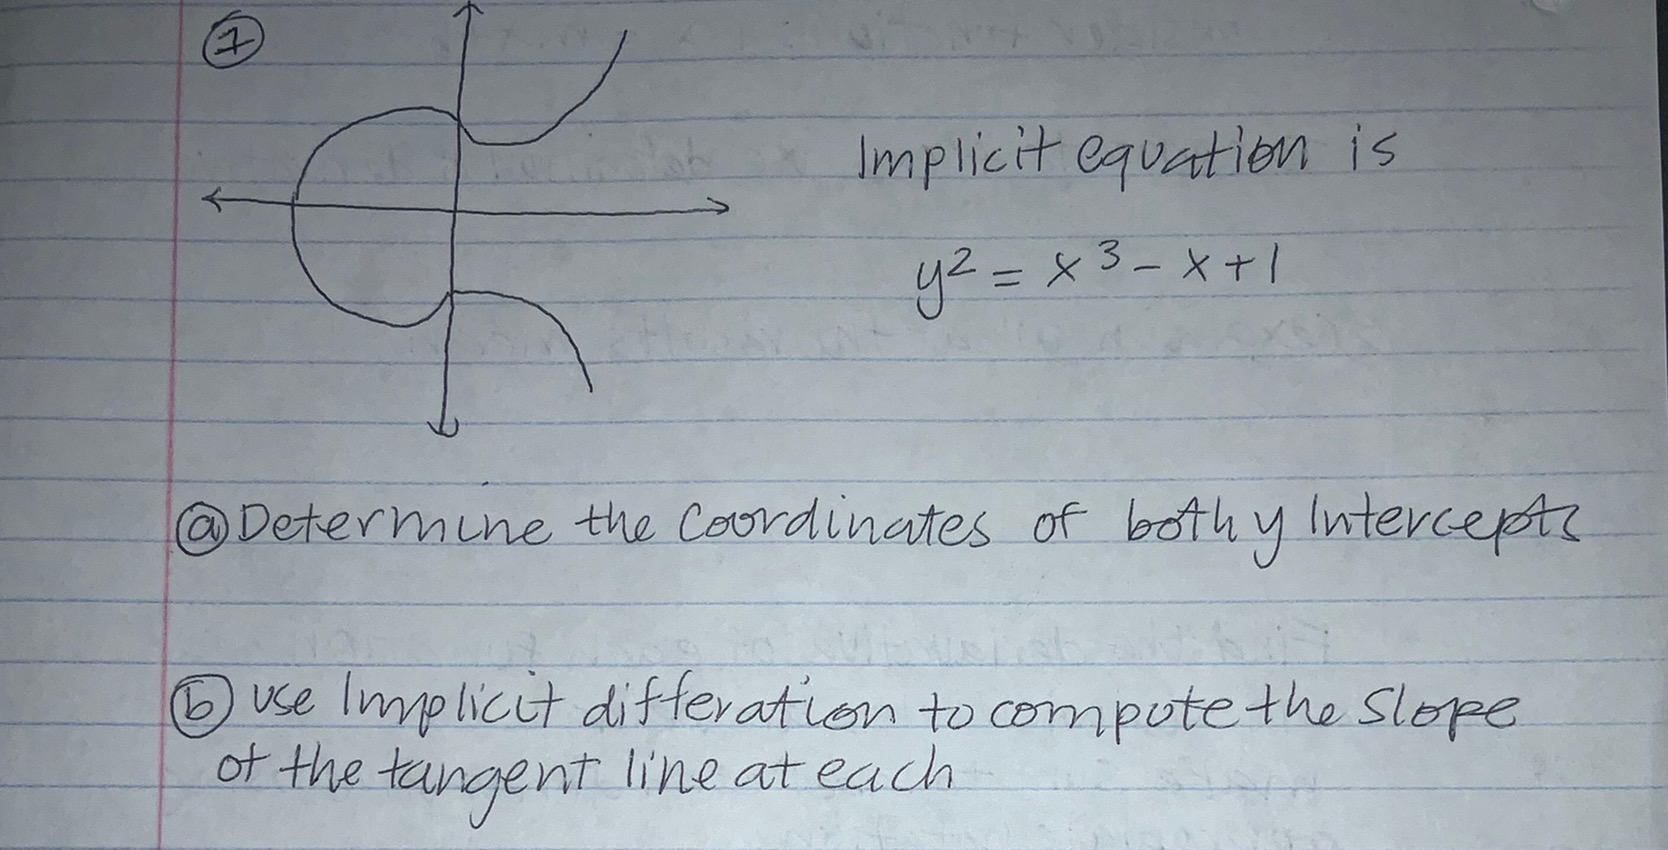 1
Implicit equation is
y² = x³ - x + 1
ⓐ Determine the Coordinates of both y Intercepts
ⓑ use Implicit differation to compute the slope
of the tangent line at each